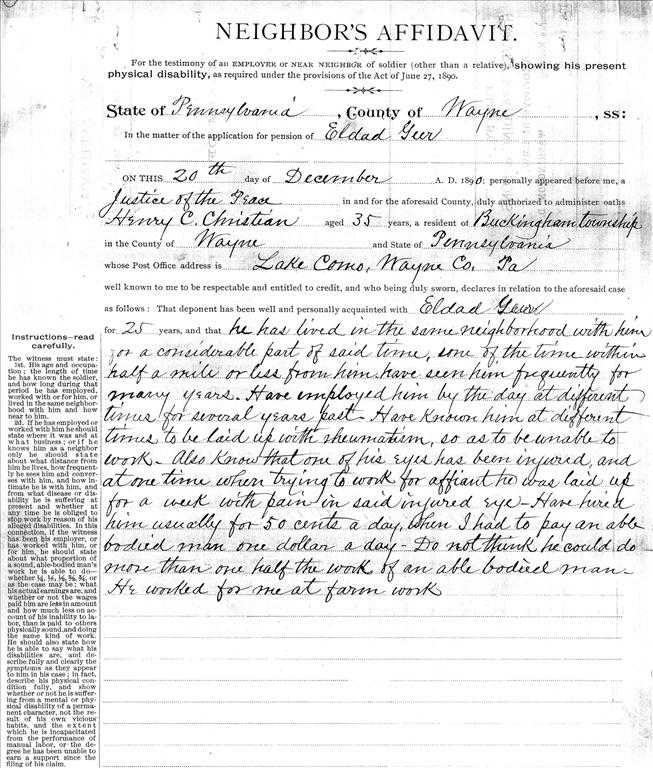 NEIGHBOR'S AFFIDAVIT.
For the testimony of an EMPLOYER or NEAR NEIGHBOR of soldier (other than a relative), showing his present
physical disability, as required under the provisions of the Act of June 27, 1890.
State of Pennsylvania, County of Wayne, ss:
In the matter of the application for pension of Eldad Geer
ON THIS 20th day of December A. D. 1890; personally appeared before me, a
Justice of the Peace in and for the aforesaid County, duly authorized to administer oaths
Henry C. Christian aged 35 years, a resident of Buckingham township
in the County of Wayne and State of Pennsylvania
whose Post Office address is Lake Como, Wayne Co. Pa
well known to me to be respectable and entitled to credit, and who being duly sworn, declares in relation to the aforesaid case
as follows: That deponent has been well and personally acquainted with Eldad Geer
for 25 years, and that he has lived in the same neighborhood with him
for a considerable part of said time, some of the time within
half a mile or less from him. have seen him frequently for
many years. Have employed him by the day at different
times for several years past - Have known him at different
times to be laid up with rheumatism, so as to be unable to
work - Also know that one of his eyes has been injured, and
at one time when trying to work for affiant he was laid up
for a week with pain in said injured eye - Have hired
him usually for 50 cents a day, when I had to pay an able
bodied man one dollar a day - Do not think he could do
more than one half the work of an able bodied man -
He worked for me at farm work
Instructions—read
carefully.
The witness must state:
1st. His age and occupa-
tion; the length of time
he has known the soldier,
and how long during that
period he has employed,
worked with or for him, or
lived in the same neighbor-
hood with him and how
near to him.
2d. If he has employed or
worked with him he should
state where it was and at
what business; or if he
knows him as a neighbor
only he should state
about what distance from
him he lives, how frequent-
ly he sees him and conver-
ses with him, and how in-
timate he is with him, and
from what disease or dis-
ability he is suffering at
present and whether at
any time he is obliged to
stop work by reason of his
alleged disabilities. In this
connection, if the witness
has been his employer, or
has worked with him, or
for him, he should state
about what proportion of
a sound, able-bodied man's
work he is able to do—
whether ¼, ½, ⅓, ⅔, ¾, or
as the case may be; what
his actual earnings are, and
whether or not the wages
paid him are less in amount
and how much less on ac-
count of his inability to la-
bor, than is paid to others
physically sound, and doing
the same kind of work.
He should also state how
he is able to say what his
disabilities are, and de-
scribe fully and clearly the
symptoms as they appear
to him in his case; in fact,
describe his physical con-
dition fully, and show
whether or not he is suffer-
ing from a mental or phy-
sical disability of a perma-
nent character, not the re-
sult of his own vicious
habits, and the extent
which he is incapacitated
from the performance of
manual labor, or the de-
gree he has been unable to
earn a support since the
filing of his claim.